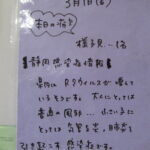 3月1日(金)
本日の病と
様子見…1名
【静岡感染症情報】
県内はRSウイルスが増えて
いるそうです。大人にとっては
普通の風邪…小さい子に
とっては気管支炎、肺炎を
引き起こす感染症です。